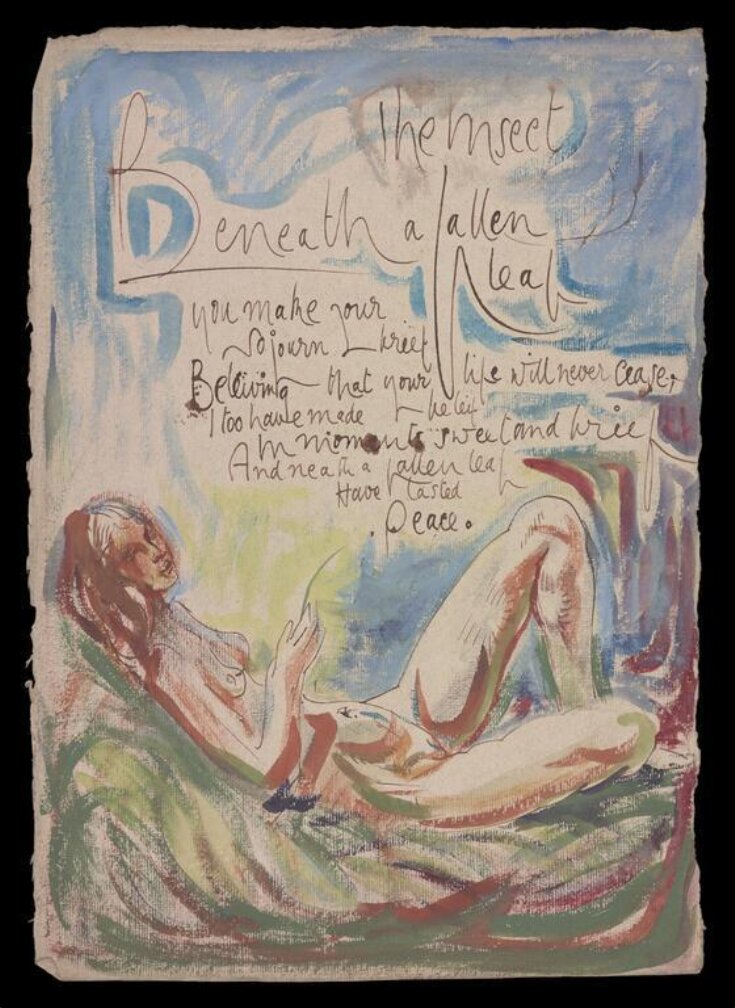 The Insect
Beneath a fallen
leaf
you make your
sojourn brief
Beleiving that your life will never cease,
I too have made
In moments sweet and brief
And neath a fallen leaf
Have tasted
. Peace .